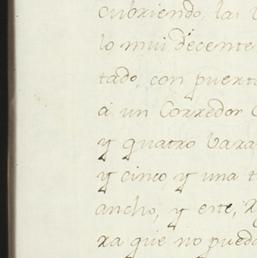 cubriendo, las
lo mui decente
tado, con puert
à un Corredor
y quatro Vara
y cinco y una t
ancho, y este,
ra que no pued